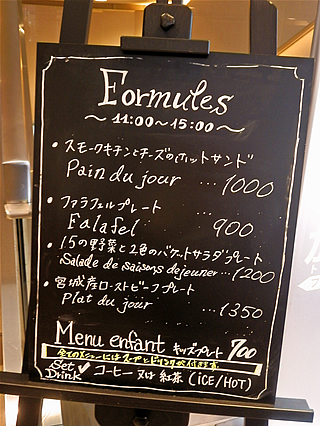 Formules
～ 11:00～15:00 ～
・スモークチキンとチーズのホットサンド
Pain du jour ... 1000
・ファラフェルプレート
Falafel ... 900
・15の野菜と2色のバゲットサラダプレート
Salade de saisons dejeuner ... 1200
・宮城産ローストビーフプレート
Plat du jour ... 1350
Menu enfant キッズプレート 700
全てのメニューにはスープとドリンクが付きます
Set Drink ✓ コーヒー 又は 紅茶 (ICE/HOT)